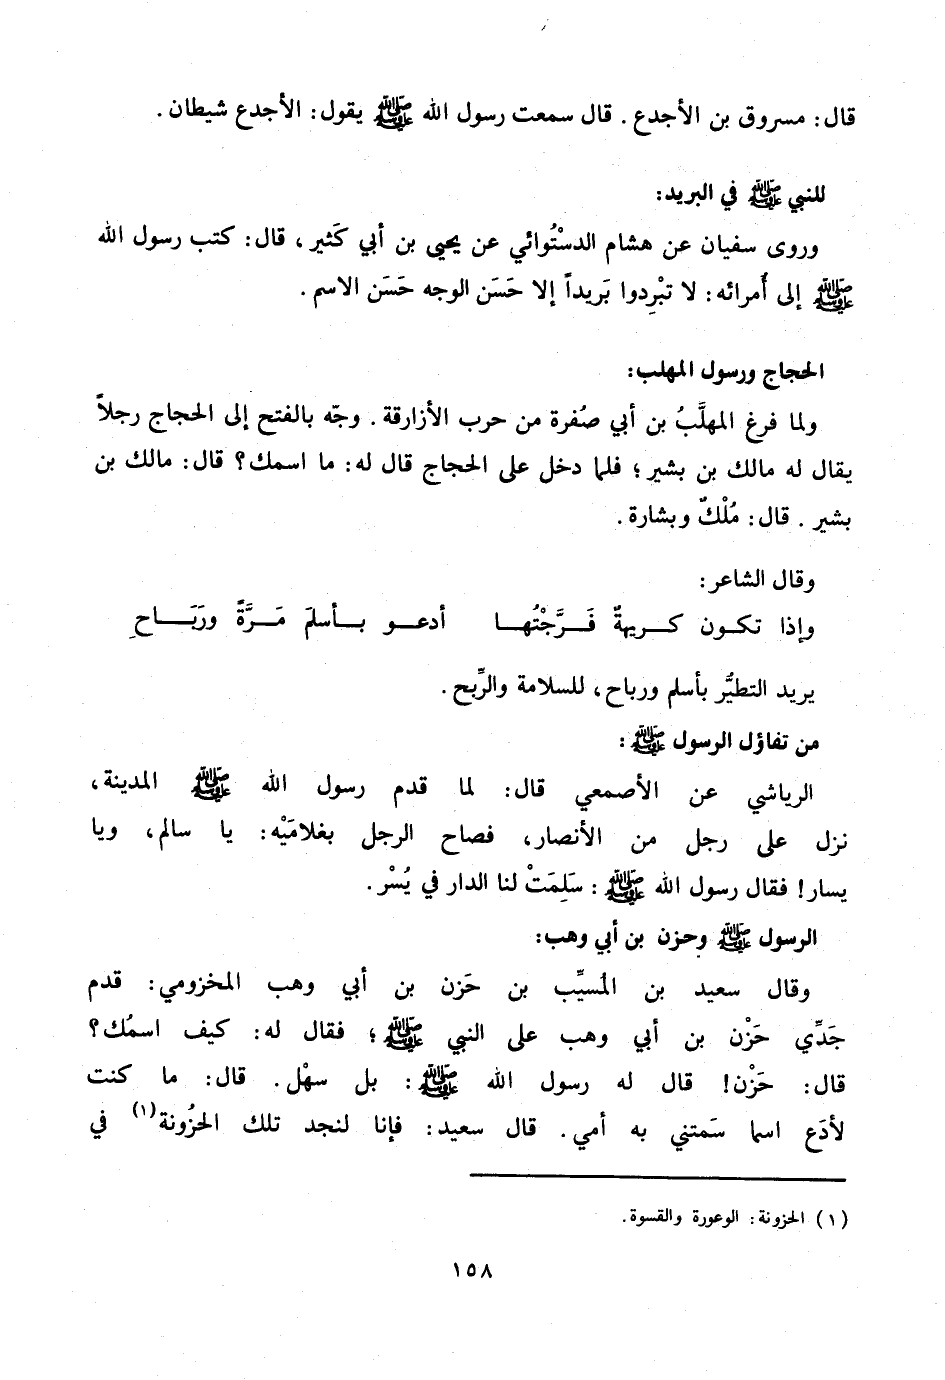 قال: مسروق بن الأجدع. قال سمعت رسول الله ﷺ يقول: الأجدع شيطان.
للنبي ﷺ في البريد:
وروى سفيان عن هشام الدسْتُوائي عن يحيى بن أبي كَثير، قال: كتب رسول الله
ﷺ إلى أُمرائه: لا تبْرِدوا بَريداً إلا حَسَن الوجه حَسَن الاسم.
الحجاج ورسول المهلب:
ولما فرغ المهلَّبُ بن أبي صُفرة من حرب الأزارقة. وجّه بالفتح إلى الحجاج رجلاً
يقال له مالك بن بشير؛ فلما دخل على الحجاج قال له: ما اسمك؟ قال: مالك بن
بشير. قال: مُلْكٌ وبشارة.
وقال الشاعر:
وإذا تكـون كـريهةٌ فَـرَّجْتُهـا أدعـو بـأسلمَ مَـرَّةً ورَبَـاحِ
يريد التطيُّر بأسلم ورباح، للسلامة والرِّبح.
من تفاؤل الرسول ﷺ:
الرياشي عن الأصمعي قال: لما قدم رسول الله ﷺ المدينة،
نزل على رجل من الأنصار، فصاح الرجل بغلامَيْه: يا سالم، ويا
يسار! فقال رسول الله ﷺ: سَلِمَتْ لنا الدار في يُسْر.
الرسول ﷺ وحزن بن أبي وهب:
وقال سعيد بن المُسيِّب بن حَزن بن أبي وهب المخزومي: قدم
جَدِّي حَزْن بن أبي وهب على النبي ﷺ؛ فقال له: كيف اسمُك؟
قال: حَزْن! قال له رسول الله ﷺ: بل سهْل. قال: ما كنت
لأدَع اسما سَمتني به أمي. قال سعيد: فإنا لنجد تلك الحزُونة(١) في
(١) الحزونة: الوعورة والقسوة.
١٥٨